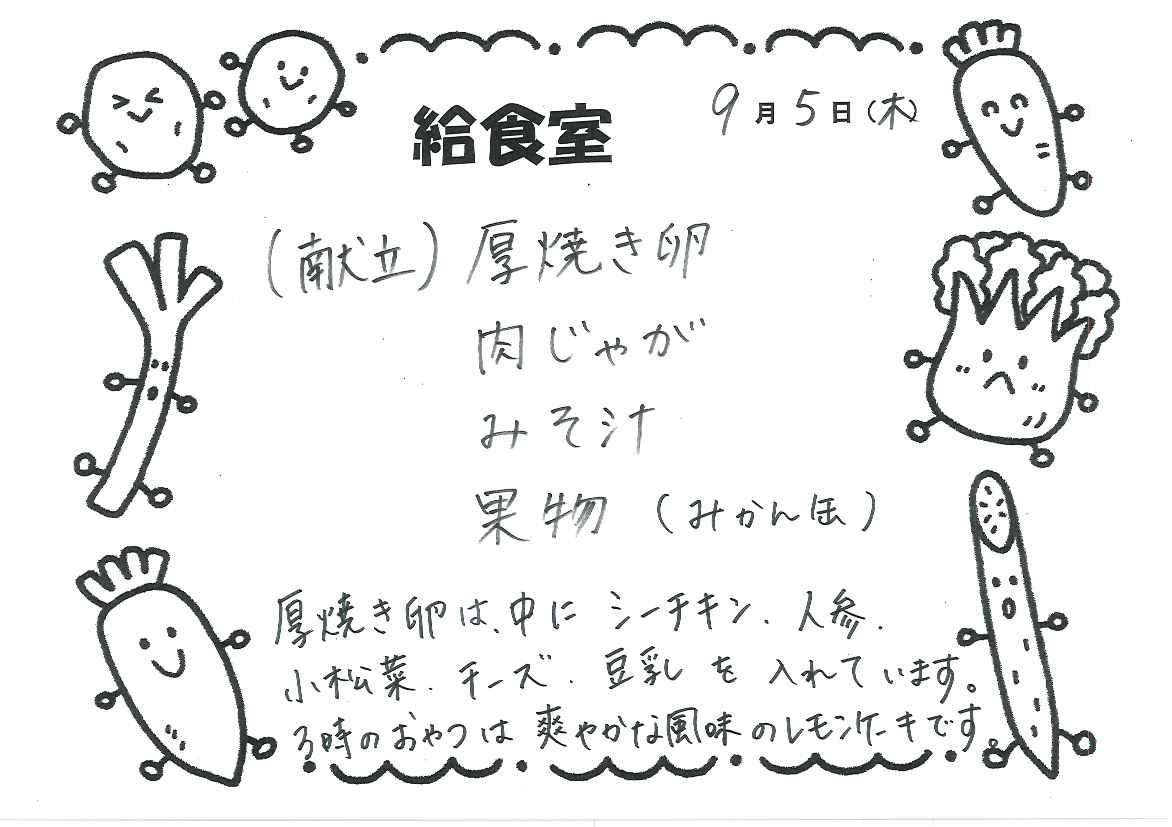 給食室
9月5日(木)
(献立)厚焼き卵
肉じゃが
みそ汁
果物 (みかん缶)
厚焼き卵は、中に シーチキン、人参、
小松菜、チーズ、豆乳を入れています。
3時のおやつは爽やかな風味のレモンケーキです。